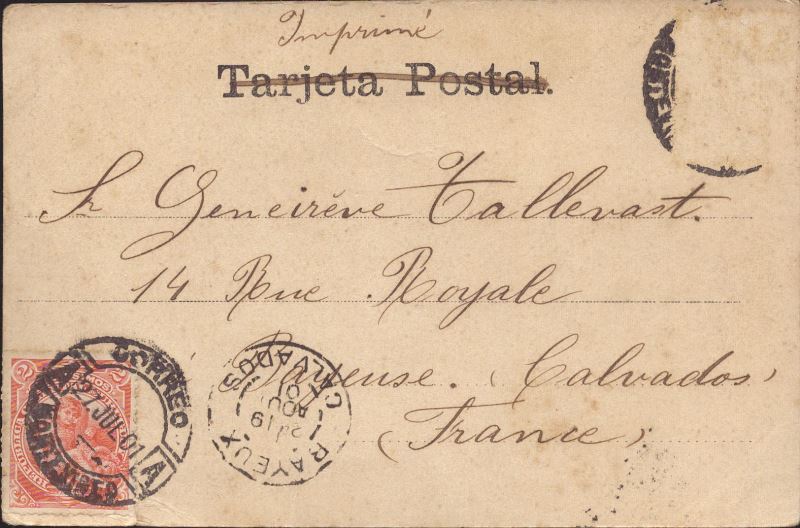 Imprimé
Tarjeta Postal.
Sr Geneiréve Tallevast.
14 Rue Royale
Bayeuse. (Calvados)
France)
CORREO
27 JUL 01
A A
MONTEVIDEO
CALVADOS
19
AOU
01
BAYEUX